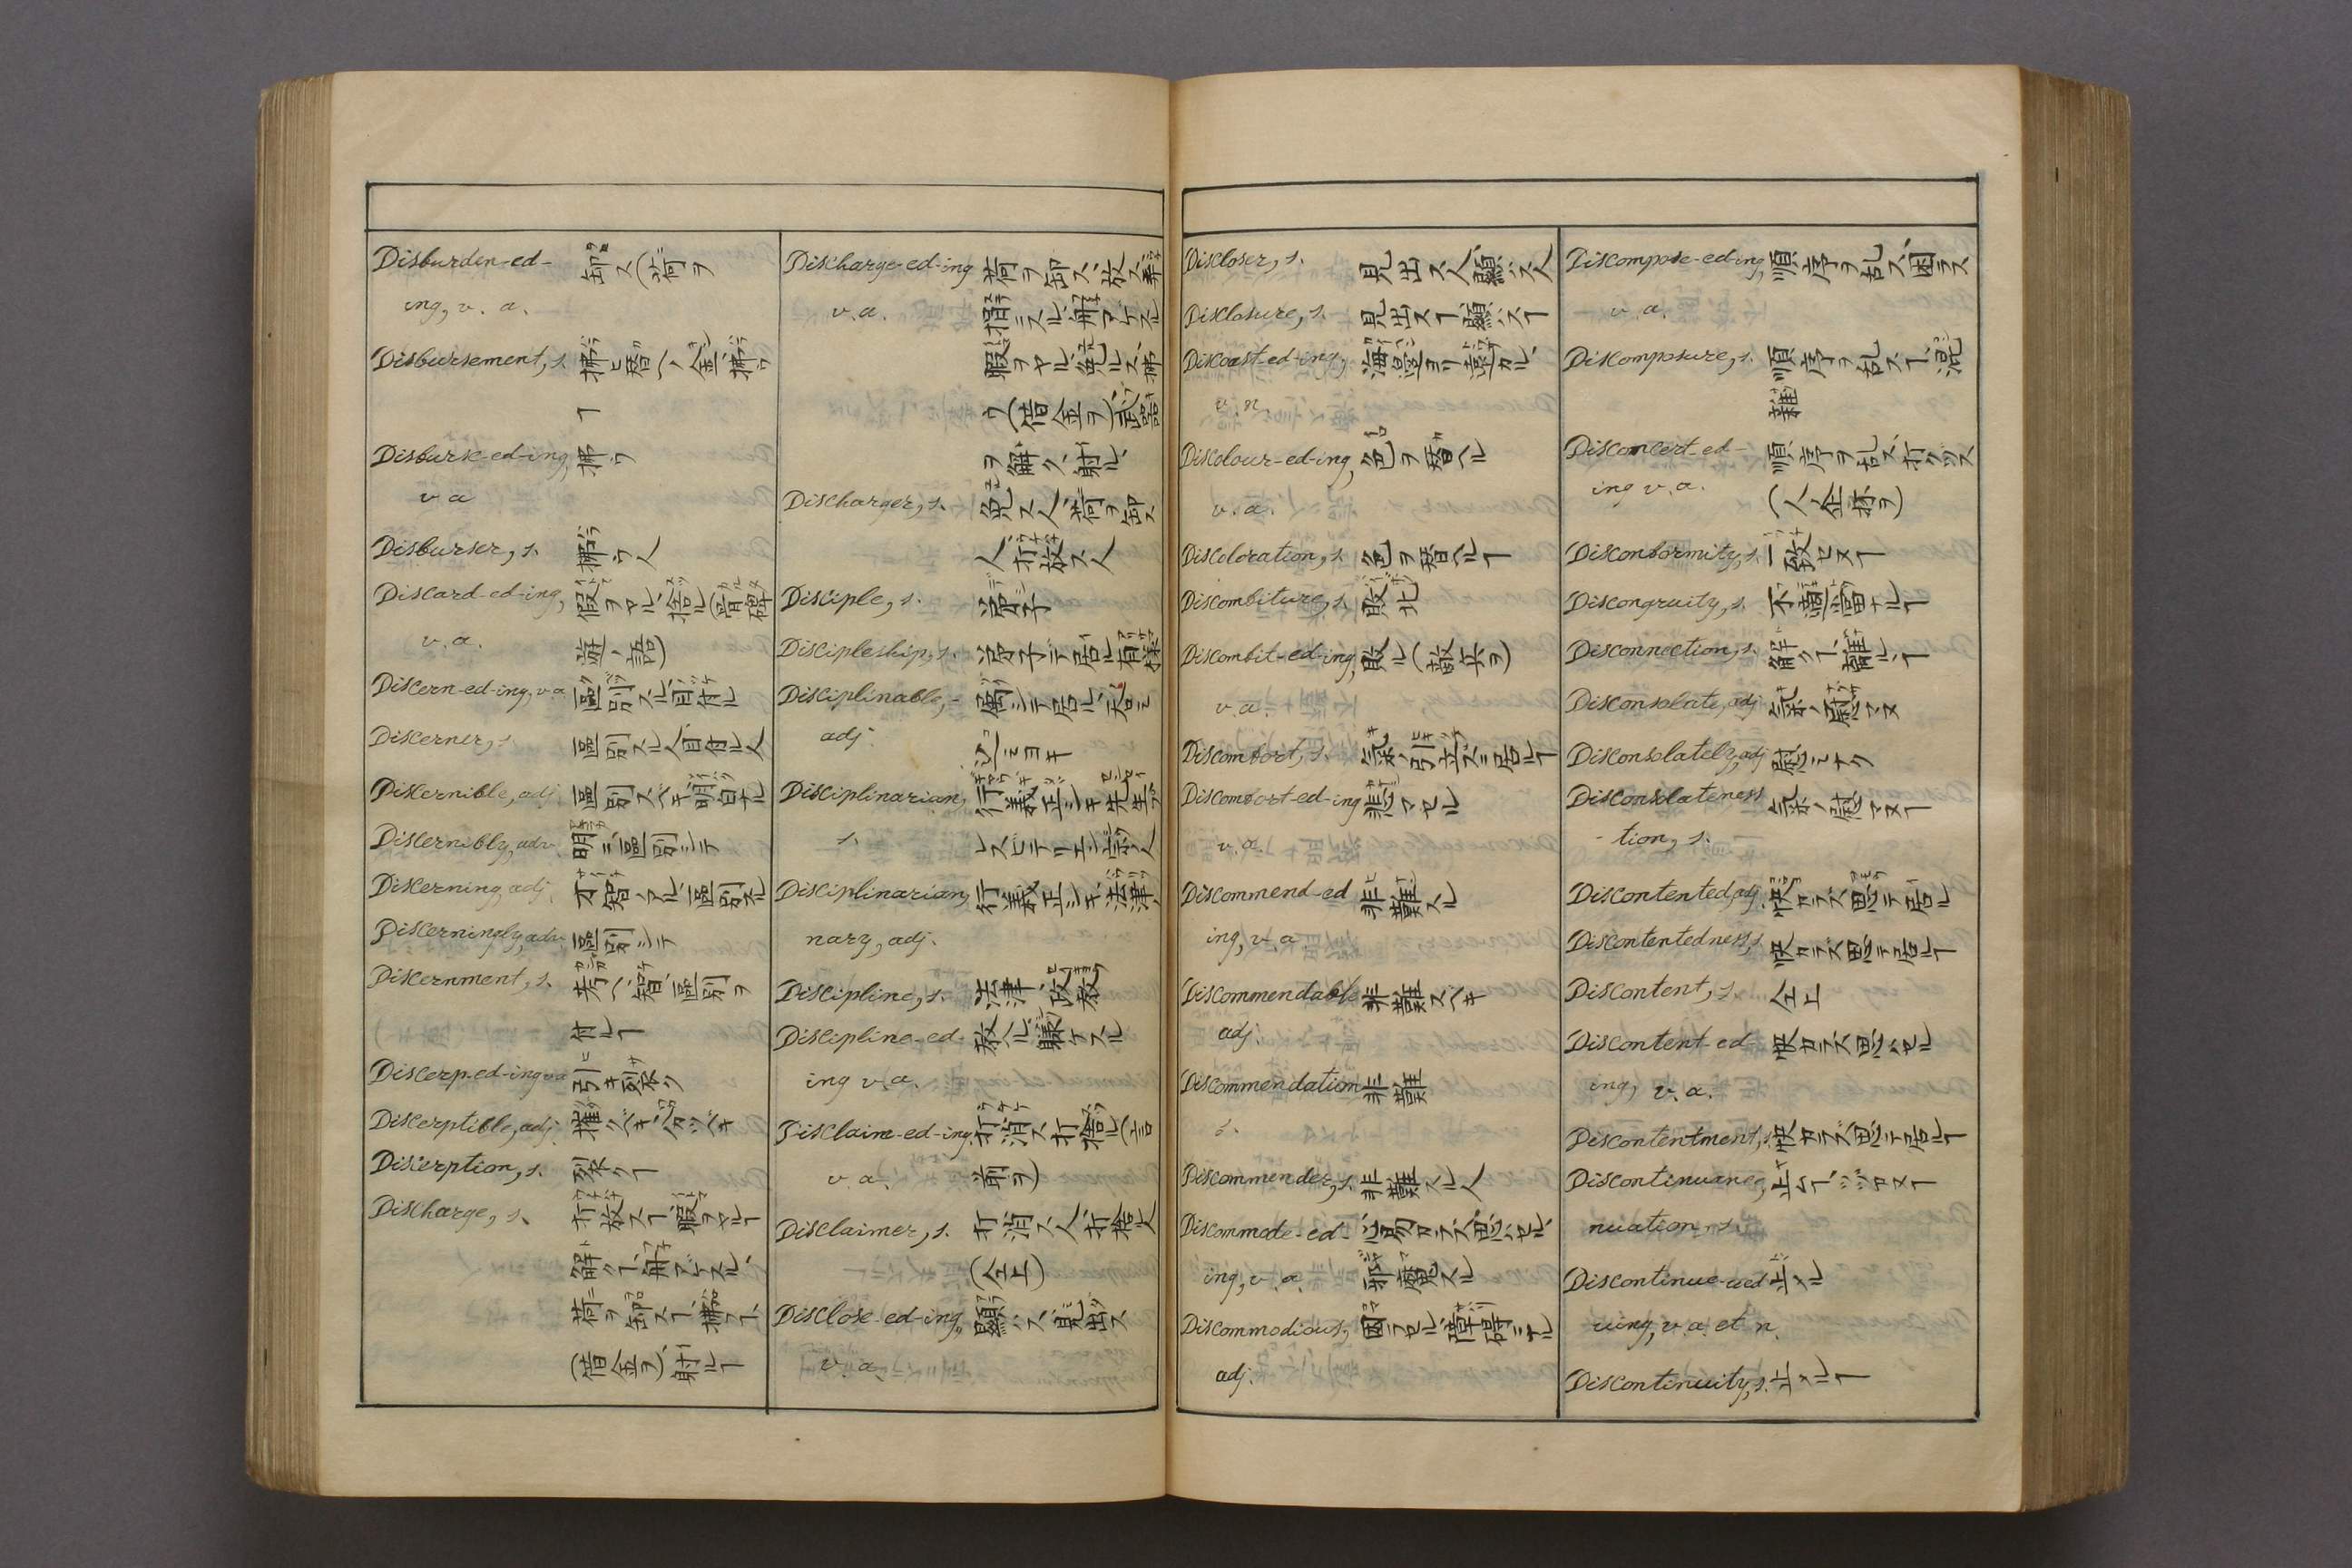 Disburden-ed- 卸ス(荷ヲ
ing, v. a.
Disbursement, s. 拂ヒ替ヘノ金、拂フ
ヿ
Disburse-ed-ing, 拂フ
v. a
Disburser, s. 拂フ人
Discard-ed-ing, 假ヲヤル、捨ル(骨牌
v. a. 遊ノ語)
Discern-ed-ing, v. a 區別スル、目付ル
Discerner, s 區別スル人、目付ル人
Discernible, adj. 區別スベキ、明白ナル
Discernibly, adv. 明ニ、區別シテ
Discerning, adj. 才智ノアル、區別スル
Discerningly, adv. 區別シテ
Discernment, s. 考ヘ、智、區別ヲ
付ルヿ
Discerp-ed-ing v a 引キ裂ク
Discerptible, adj.
Discerption, s. 裂クヿ
Discharge, s. 打放スヿ、暇ヲヤルヿ
解クヿ、
荷ヲ卸スヿ、拂フヿ、
(借金ヲ)、射ルヿ
Discharge-ed-ing 荷ヲ卸ス、放ス、
v. a.
暇ヲヤル、免ルス、拂
フ(借金ヲ)、武器
ヲ解ク、射ル、
Discharger, s. 免ス人、荷ヲ卸ス
人、打放ス人
Disciple, s. 弟子
Discipleship, s. 弟子デ居ル有様
Disciplinable, -
adj.
込ミヨキ
Disciplinarian, 行義正シキ先生、プ
s. レスビテリエン宗ノ人
Disciplinarian, 行義正シキ、法津ノ
nary, adj.
Discipline, s. 法津、政教
Discipline-ed- 教ヘル、躾ケスル
ing v. a.
Disclaim-ed-ing, 打消ス、打捨ル(言
v. a. 前ヲ)
Disclaimer, s. 打消ス人、打捨ル人
(仝上)
Disclose-ed-ing, 顯ハス、見出ス
v. a.
Discloser, s. 見出ス人、顯ハス人
Disclosure, s. 見出スヿ、顯ハスヿ
Discoast-ed-ing, 海邉ヨリ遠カル、
v. n.
Discolour-ed-ing, 色ヲ替ヘル
v. a.
Discoloration, s. 色ヲ替ヘルヿ
Discomfiture, s. 敗北
Discomfit-ed-ing, 敗ル(敵兵ヲ)
v. a.
Discomfort, s. 氣ノ引立ズニ居ルヿ
Discomfort-ed-ing 悲マセル
v. a.
Discommend-ed 非難スル
ing, v. a
Discommendable 非難スベキ
adj.
Discommendation 非難
s.
Discommender, s. 非難スル人
Discommode-ed-
ing, v. a 邪魔スル
Discommodious, 困ラセル、障碍ニナル
adj.
Discompose-ed-ing, 順序ヲ乱ス、困ラス
v. a.
Discomposure, s. 順序ヲ乱スヿ、混
雜
Disconcert-ed- 順序ヲ乱ス、打クヅス
ing v. a. (人ノ企抔ヲ)
Disconformity, s. 一致セヌヿ
Discongruity, s. 不適當ナルヿ
Disconnection, s. 解クヿ、離ルヽヿ
Disconsolate, adj 氣ノ慰マヌ
Disconsolately, adj 慰ミナク
Disconsolateness 氣ノ慰マヌヿ
- tion, s.
Discontented, adj. 快カラズ思テ居ル
Discontentedness, s 快カラズ思テ居ルヿ
Discontent, s. 仝上
Discontent-ed- 快カラズ思ハセル
ing, v. a.
Discontentment, s. 快カラズ思テ居ルヿ
Discontinuance, 止ムヿ、ツヅカヌヿ
nuation, s.
Discontinue-ued 止メル
uing, v. a. et n.
Discontinuity, s. 止メルヿ